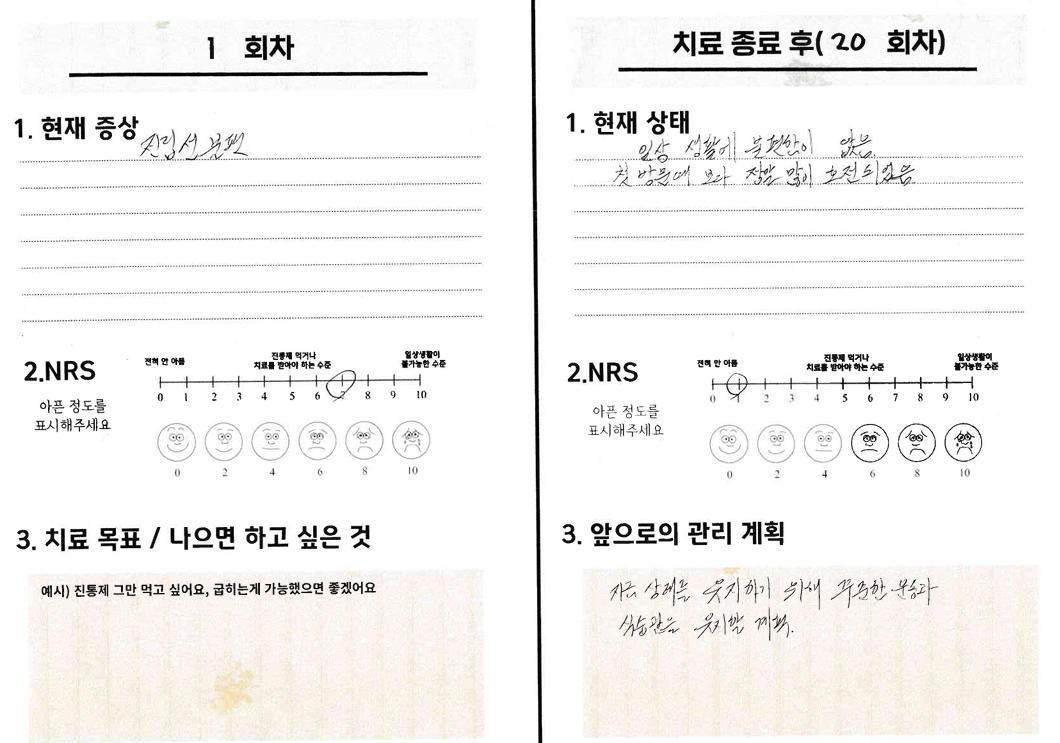 1 회차
1. 현재 증상
전립선 불편
2.NRS
아픈 정도를
표시해주세요
전혀 안 아픔
진통제 먹거나
치료를 받아야 하는 수준
일상생활이
불가능한 수준
0 1 2 3 4 5 6 7 8 9 10
0 2 4 6 8 10
3. 치료 목표 / 나으면 하고 싶은 것
예시) 진통제 그만 먹고 싶어요, 굽히는게 가능했으면 좋겠어요
치료 종료 후( 20 회차)
1. 현재 상태
일상 생활에 불편함이 없음.
첫 방문때 보다 정말 많이 호전되었음
2.NRS
아픈 정도를
표시해주세요
전혀 안 아픔
진통제 먹거나
치료를 받아야 하는 수준
일상생활이
불가능한 수준
0 1 2 3 4 5 6 7 8 9 10
0 2 4 6 8 10
3. 앞으로의 관리 계획
지금 상태를 유지하기 위해 꾸준한 운동과
식습관을 유지할 계획.